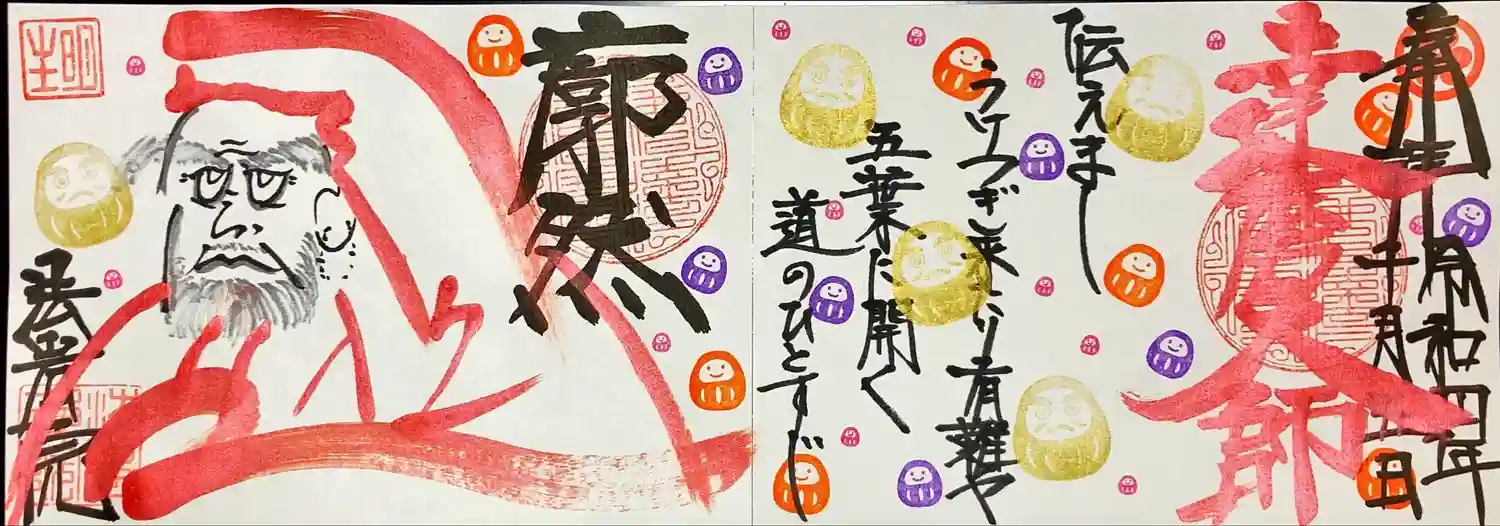 奉拝
令和四年
十月五日
達磨大師
伝えまし
うけつぎ来り有難や
五葉に開く
道のひとすじ
廓然